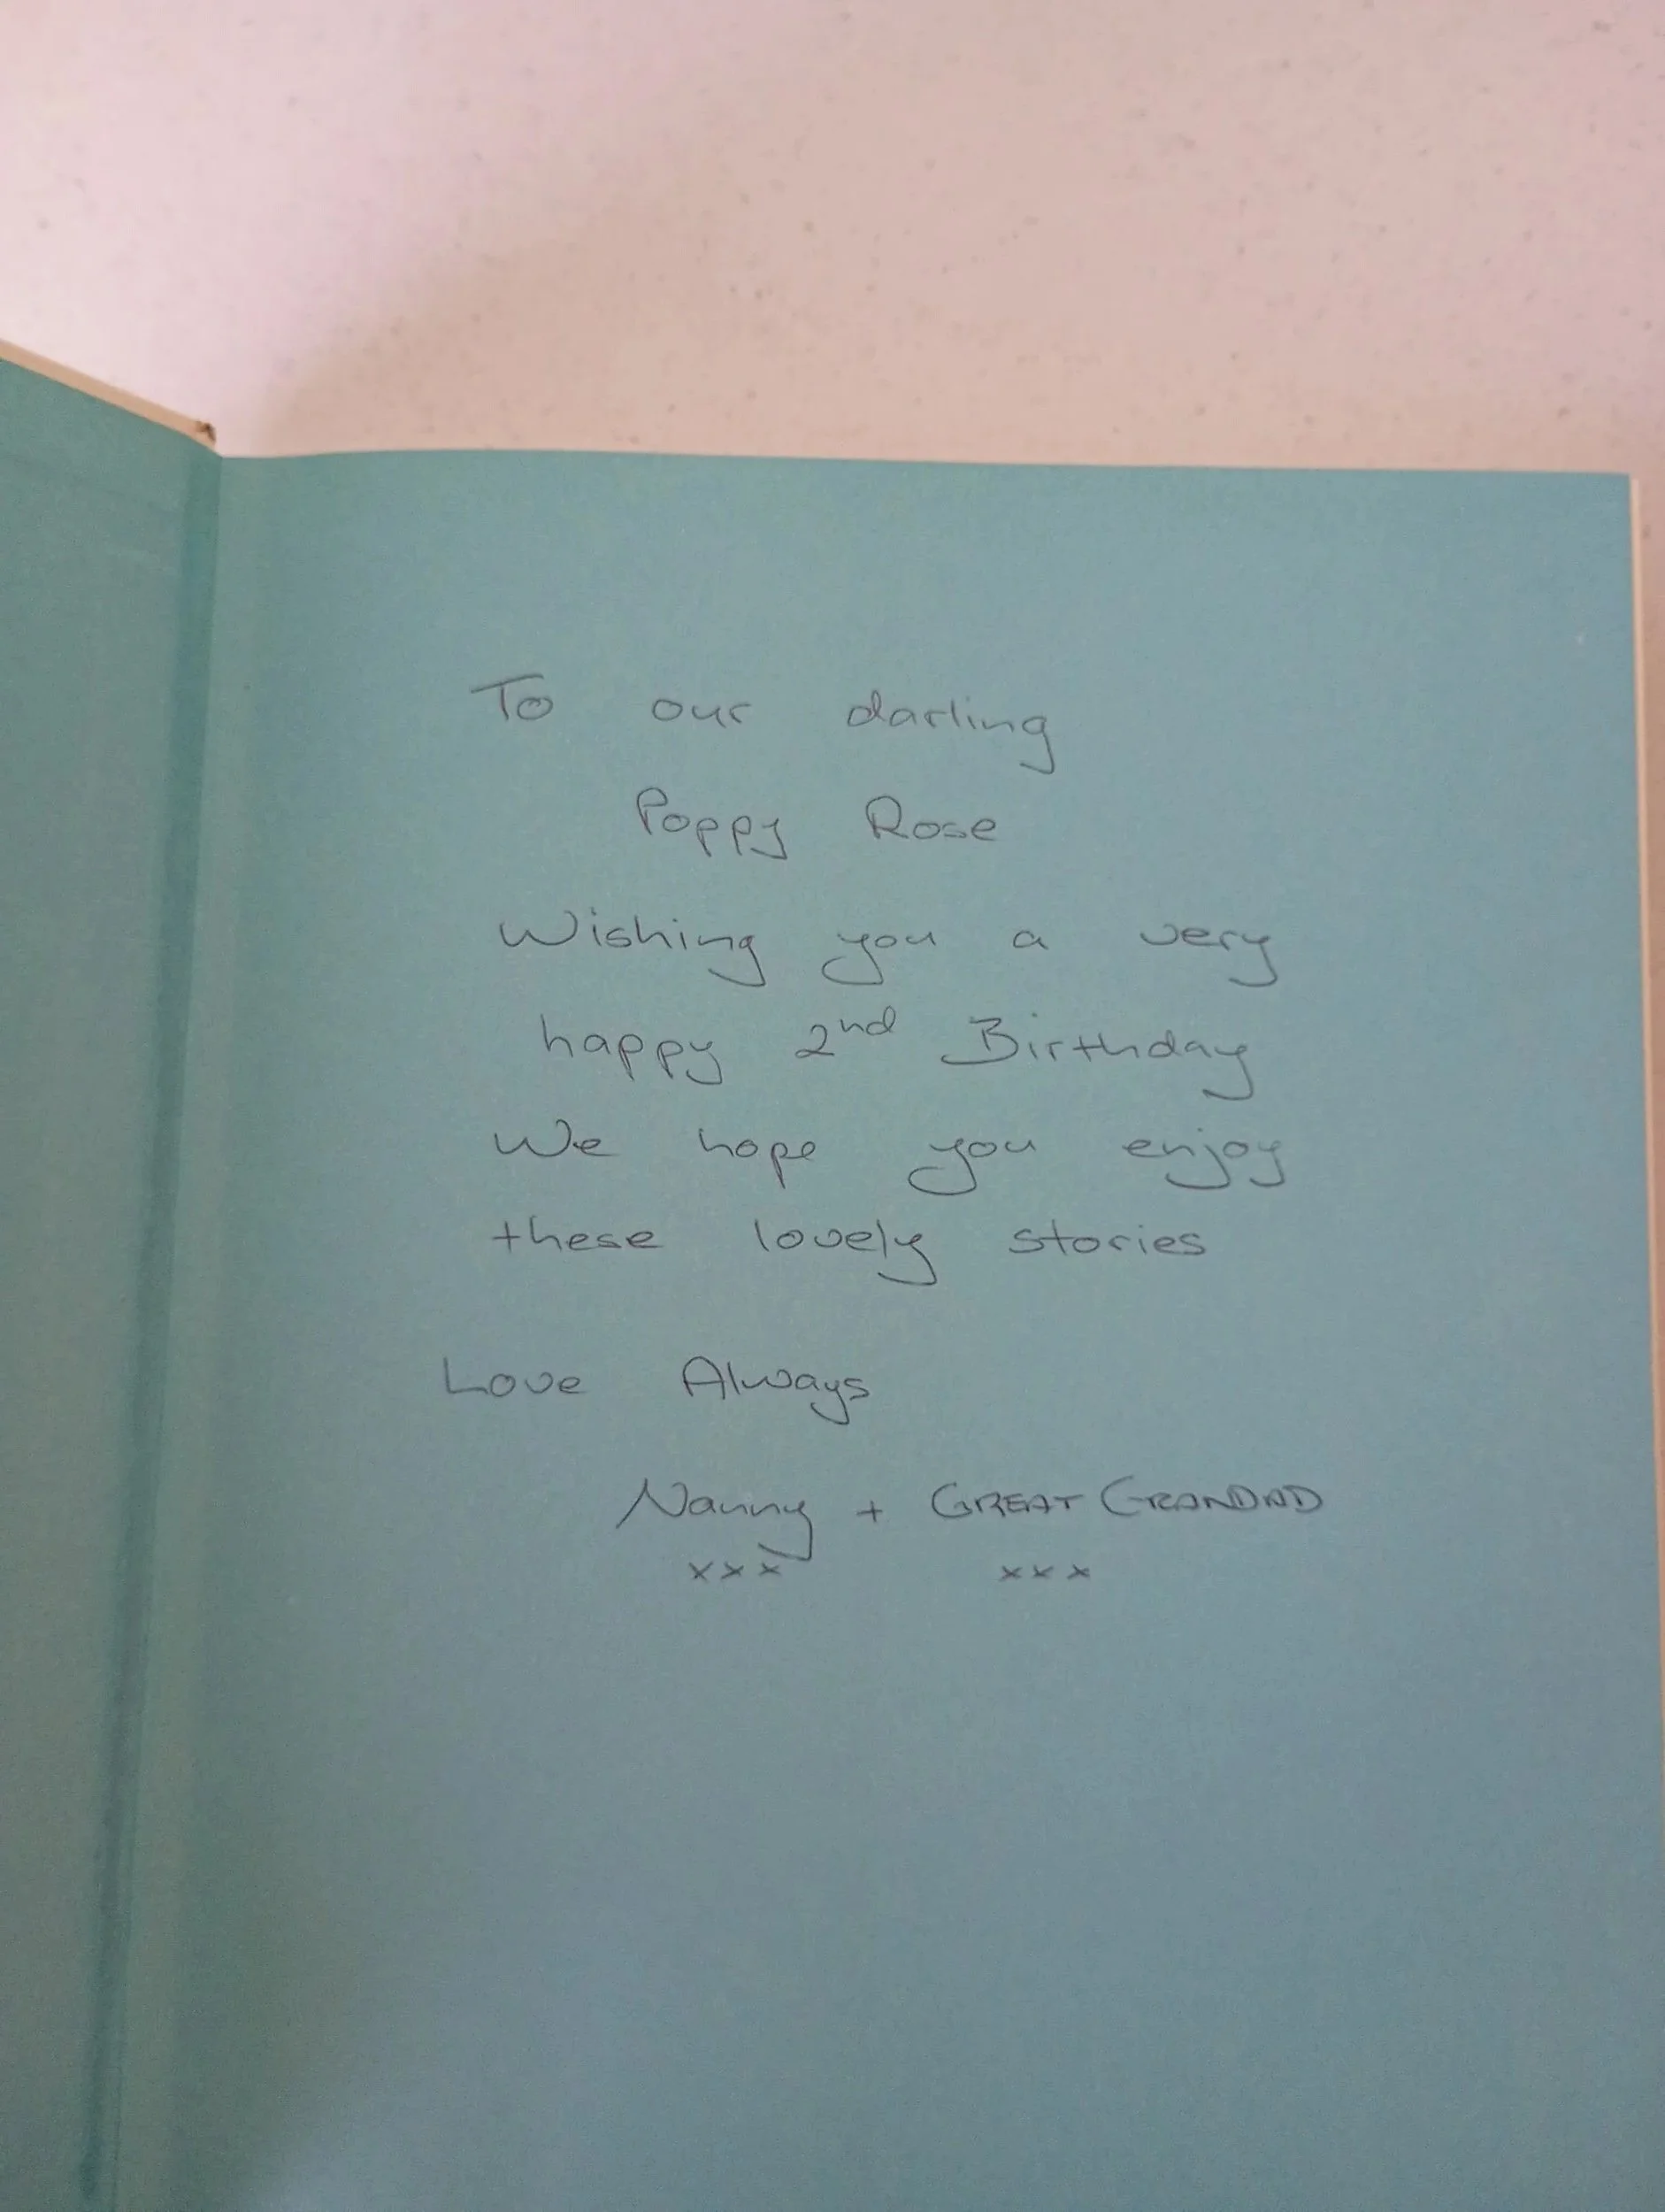 To our darling
Poppy Rose
Wishing you a very
happy 2nd Birthday
We hope you enjoy
these lovely stories
Love Always
Nanny + GREAT GRANDAD
xxx xxx